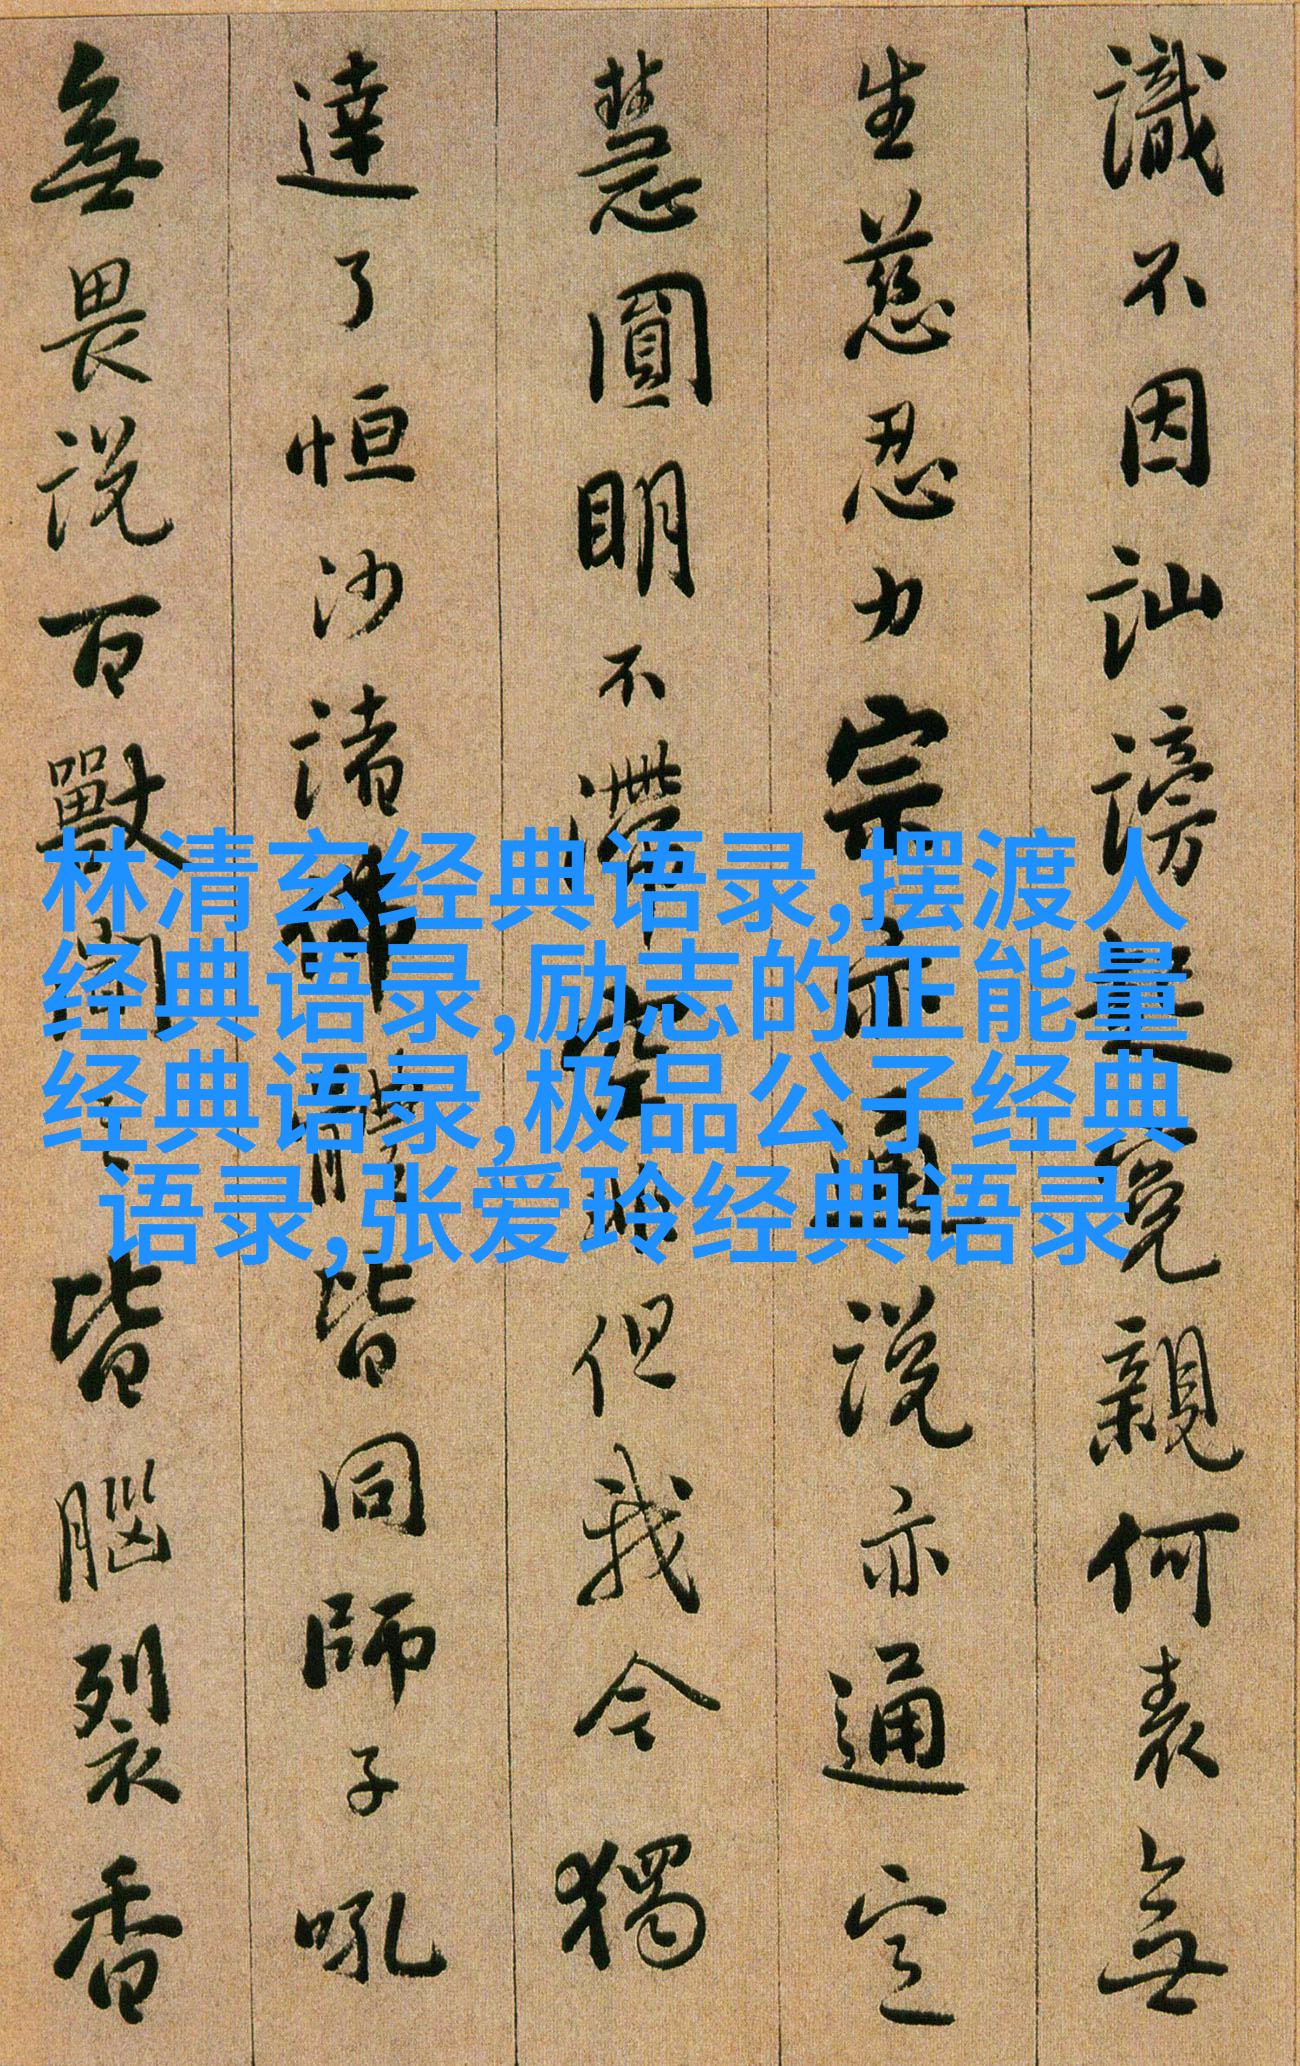 識不因訕謗起冤親何表無
生慈忍力宗亦通説亦通定
慧圓明不滯空非但我今獨
達了恒沙諸佛體皆同師子吼
無畏説百獸聞之皆腦裂香
林清玄经典语录,摆渡人
经典语录,励志的正能量
经典语录,极品公子经典
语录,张爱玲经典语录